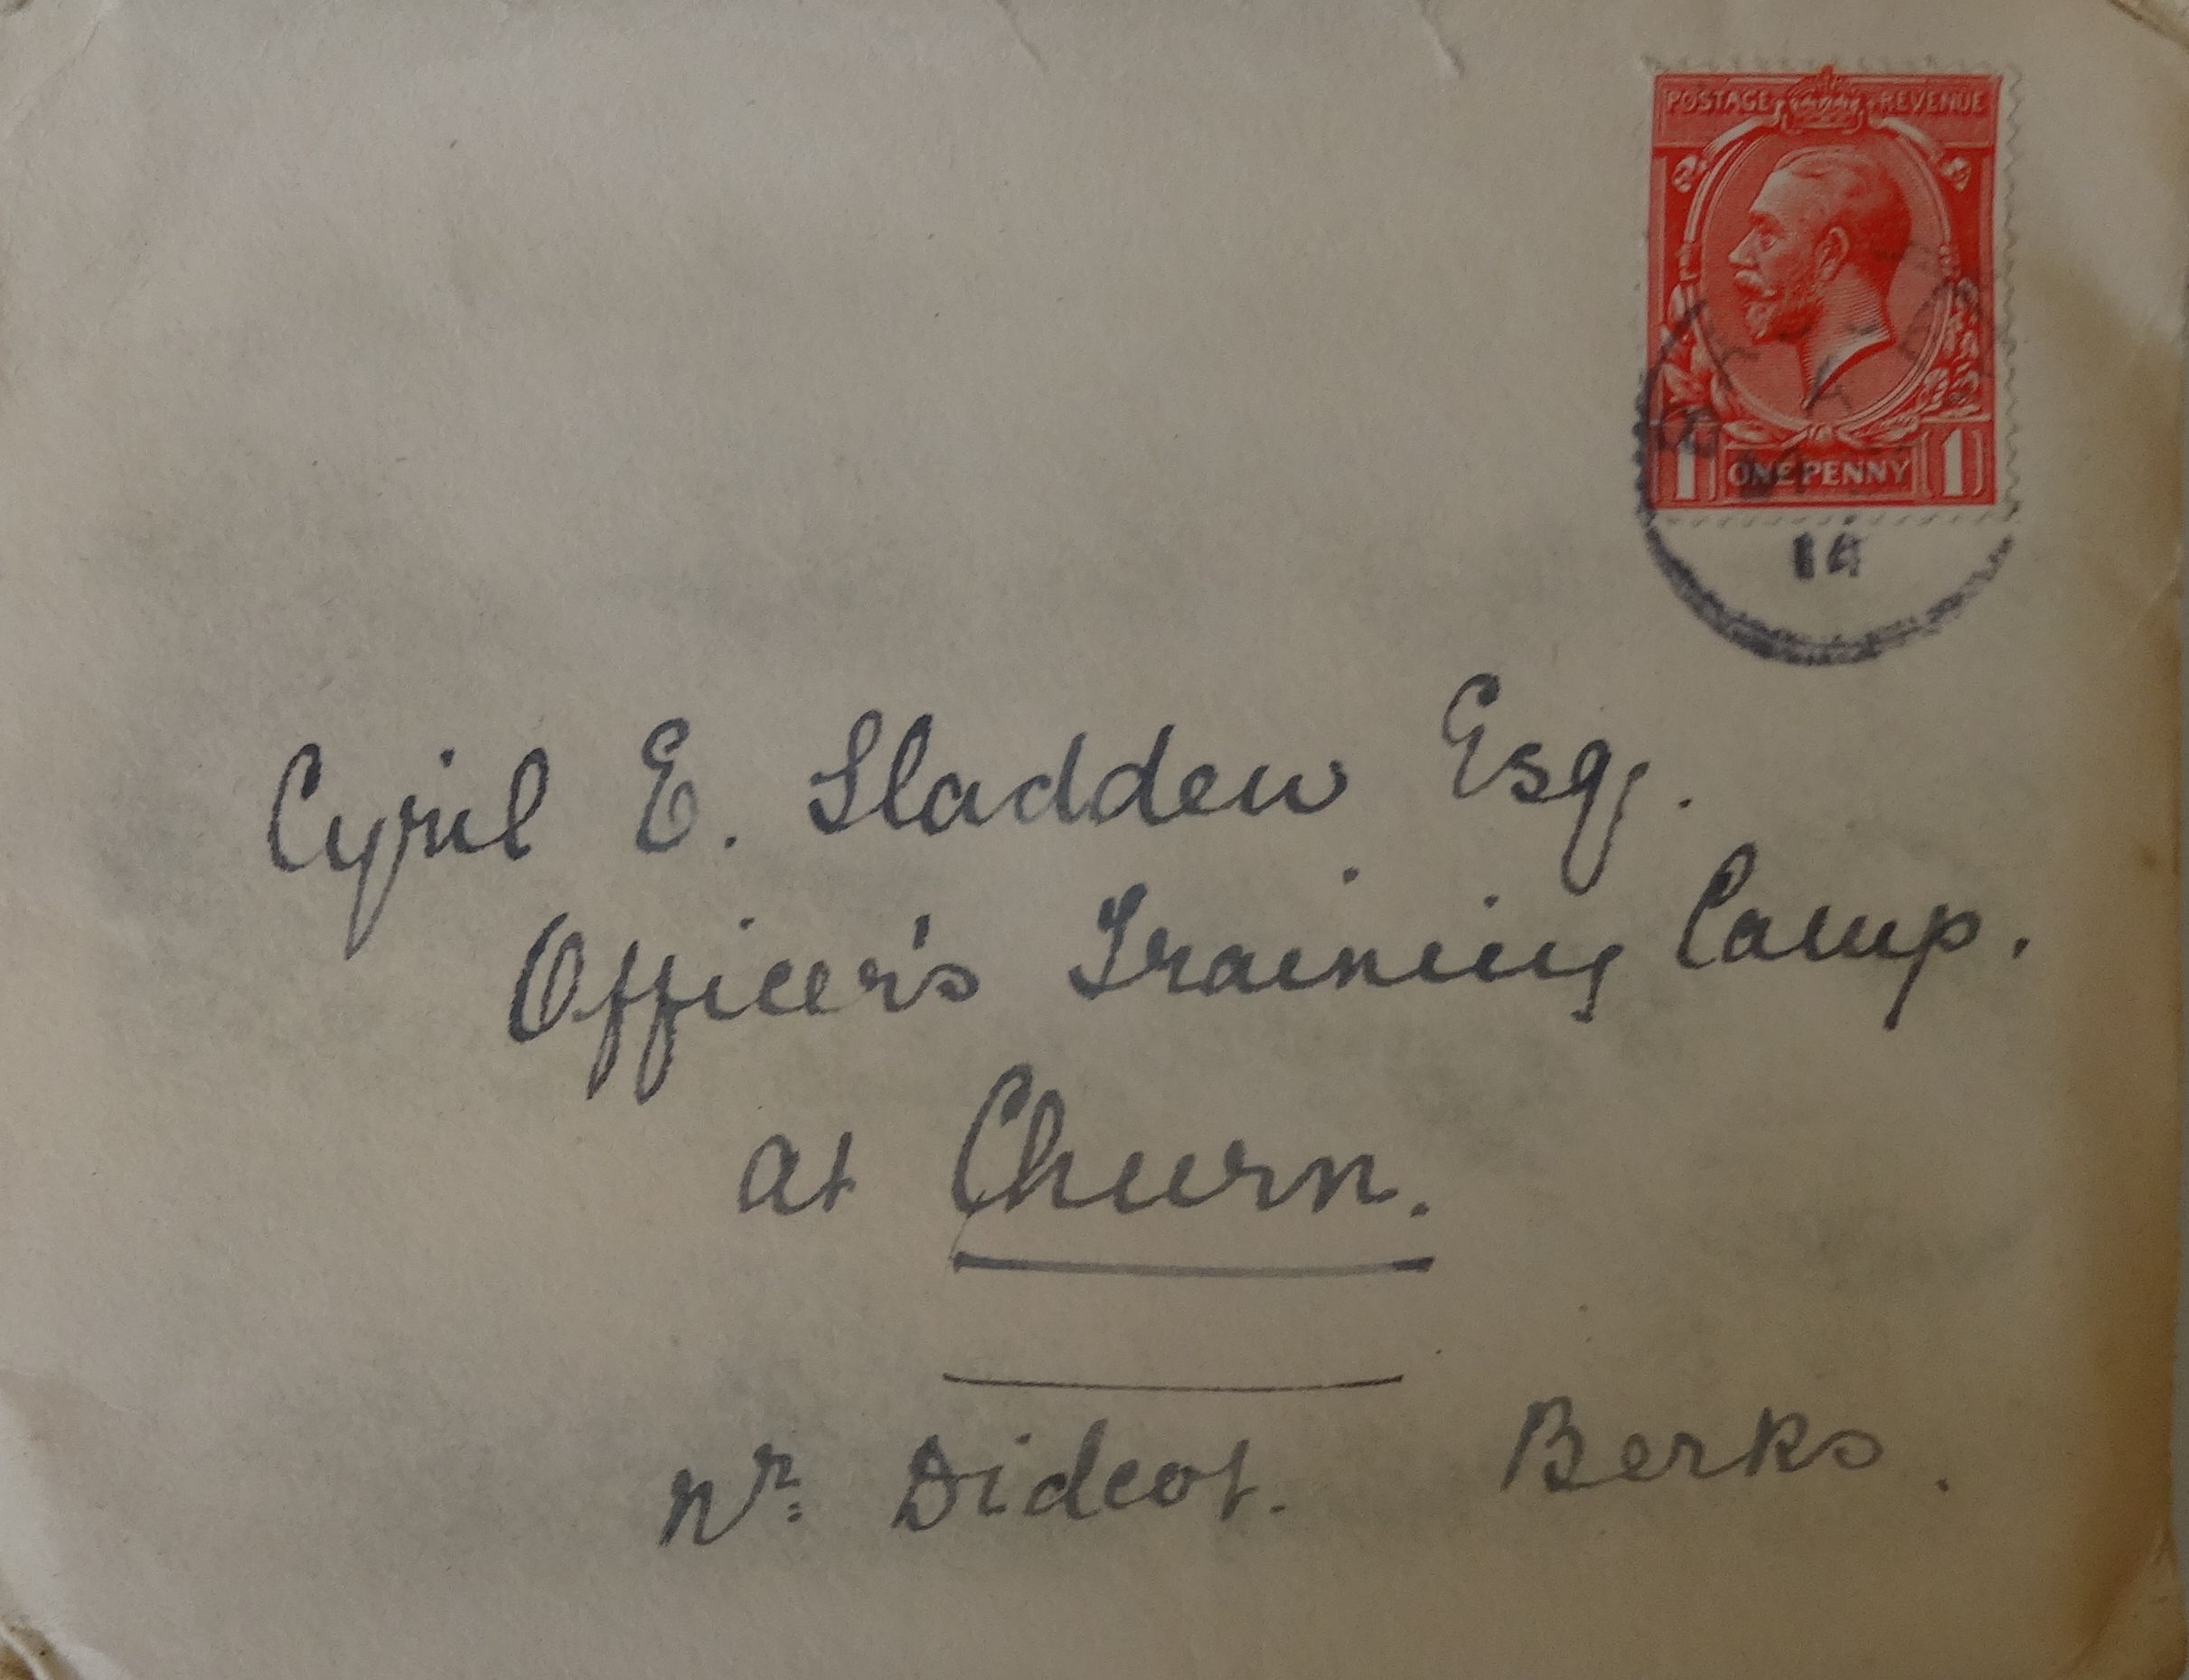 POSTAGE REVENUE
1 ONE PENNY 1
14
Cyril E. Sladden Esq.
Officer's Training Camp.
at Churn.
Nr. Didcot. Berks.